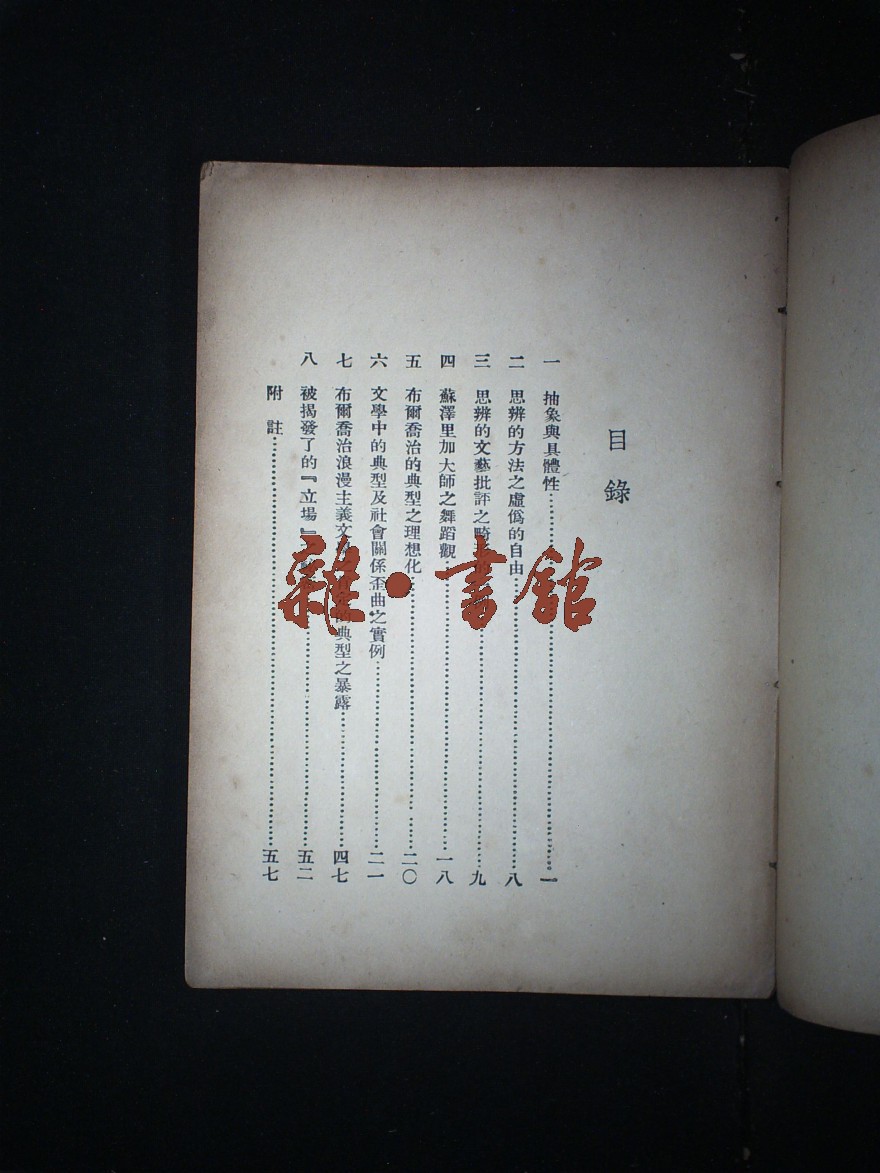 目錄
一 抽象與具體性……一
二 思辨的方法之虛僞的自由……八
三 思辨的文藝批評之畸……九
四 蘇澤里加大師之舞蹈觀……一八
五 布爾喬治的典型之理想化……二〇
六 文學中的典型及社會關係歪曲之實例……二一
七 布爾喬治浪漫主義文 的典型之暴露……四七
八 被揭發了的『立場』……五二
附註……五七
雜·書館